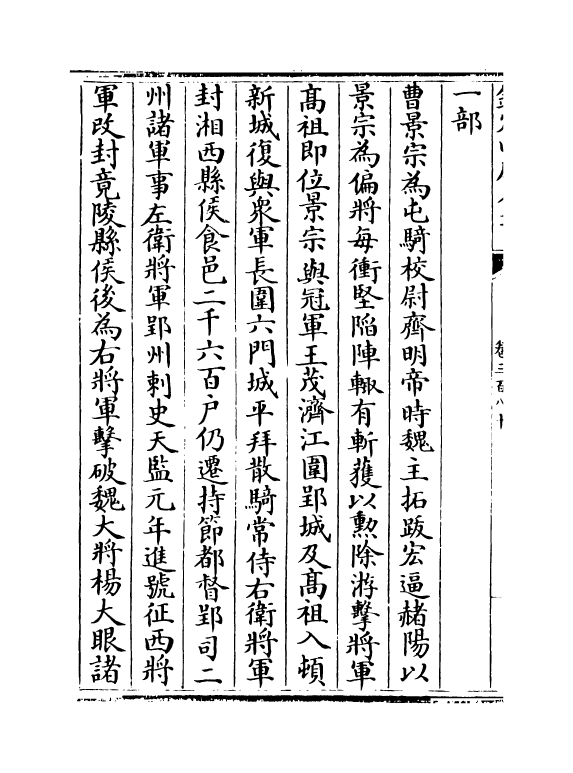 一部
曹景宗為屯騎校尉齊明帝時魏主拓跋宏逼赭陽以
景宗為偏將每衝堅陷陣輙有斬獲以勲除游擊將軍
髙祖即位景宗與冠軍王茂濟江圍郢城及髙祖入頓
新城復與衆軍長圍六門城平拜散騎常侍右衛將軍
封湘西縣侯食邑二千六百户仍遷持節都督郢司二
州諸軍事左衛將軍郢州刺史天監元年進號征西將
軍改封竟陵縣侯後為右將軍擊破魏大將楊大眼諸